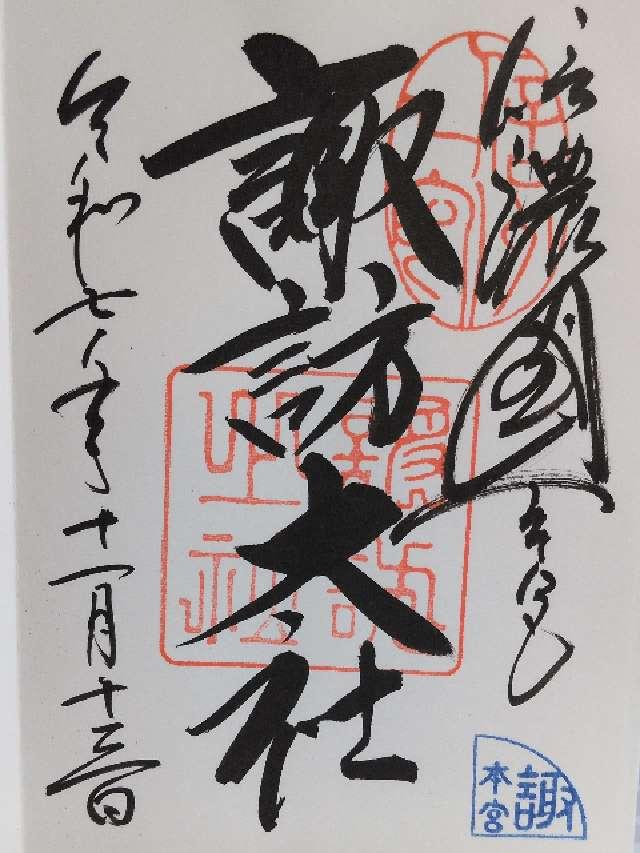 信濃國一之宮
諏訪大社
令和七年十一月十三日
諏
本宮